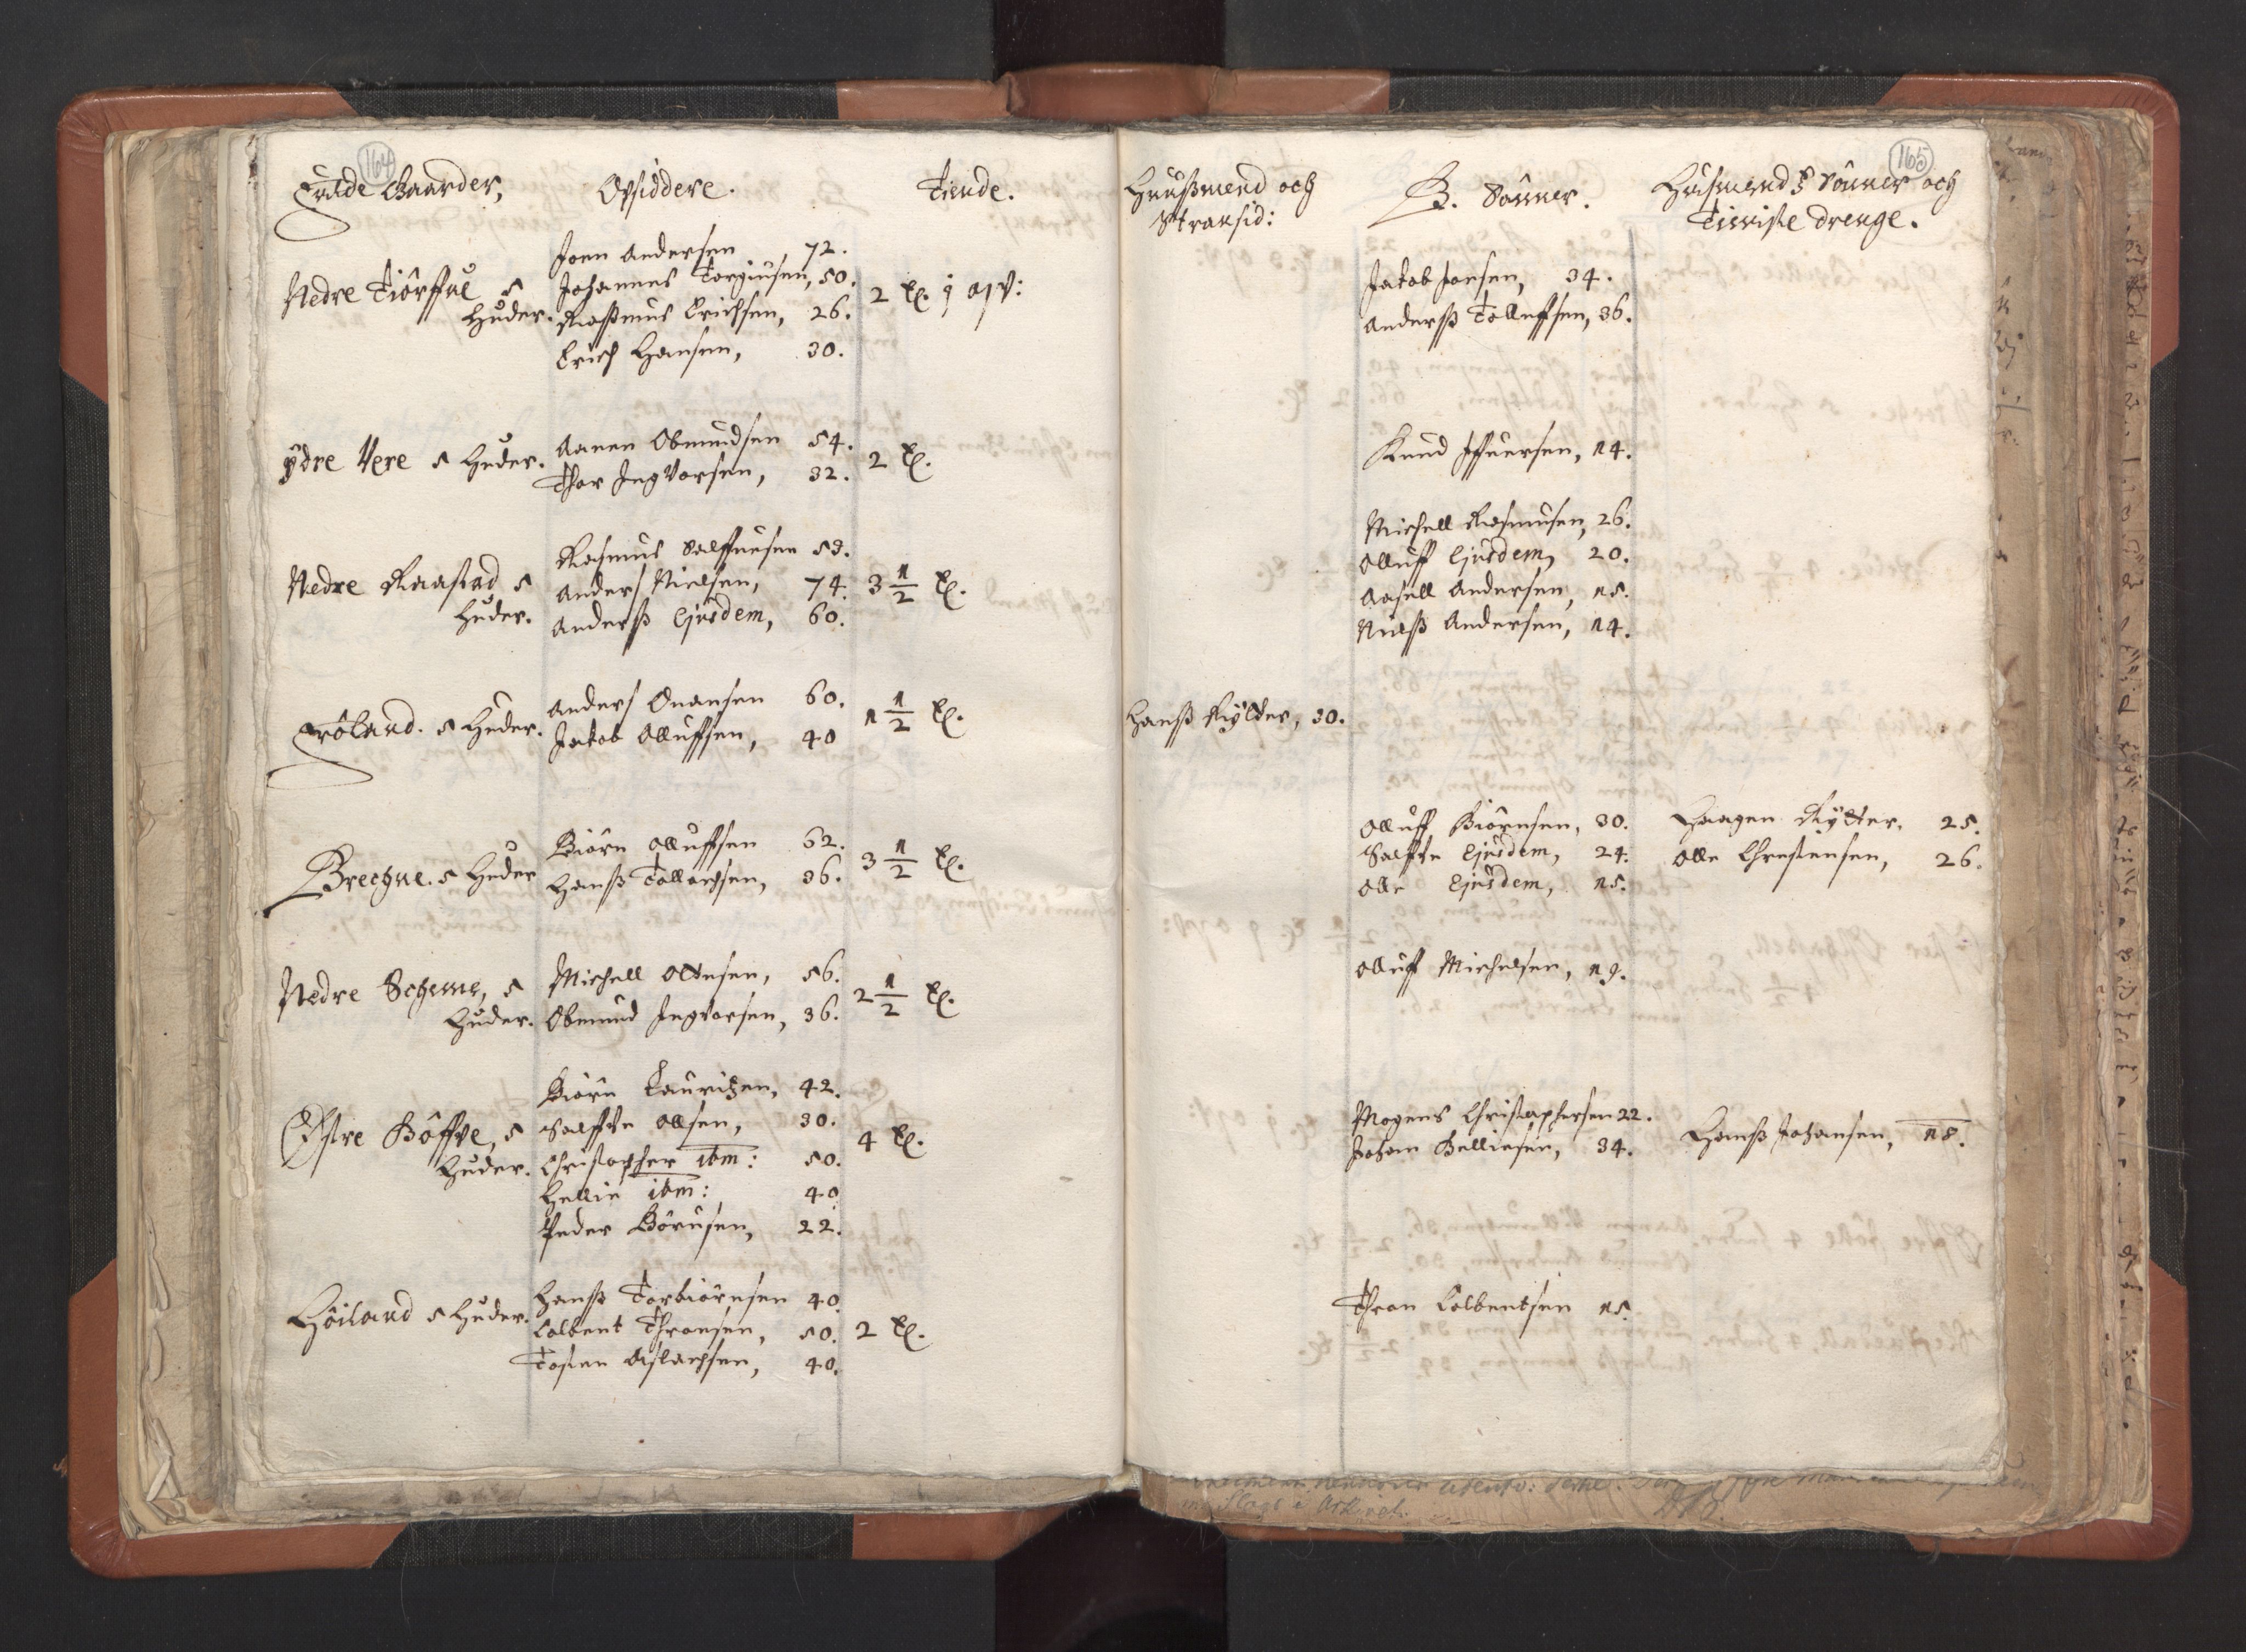 164
Fulde Gaarder,
Opsiddere.
Tiende.
Nedre Tiörffue 5
Huder.
Joen Andersen 72.
Johannes Torgiusen, 50.
Rasmus Erichsen, 26.
Erich Hansen, 30.
2 Tl.
Ydre Vere 5 Huder.
Aanen Obmundsen 54.
Thor Inguorsen, 32.
2 Tl.
Nedre Raastad 5
Huder.
Rasmus Salffuesen 53.
Anders Nielsen, 74.
Anderss Ejusdem, 60.
3 1/2 Tl.
Fröland. 5 Huder.
Anders Onansen 60.
Jakob Olluffsen, 40
1 1/2 Tl.
Brechne. 5 Huder
Biörn Olluffsen 62.
Hanss Tollachsen, 36.
3 1/2 Tl.
Nedre Scheme, 5
Huder.
Michell Oltesen, 56.
Obmund Inguorsen, 36.
2 1/2 Tl.
Östre Böffve, 5
Huder.
Biörn Lauritzen, 42.
Salffue Ollsen, 30.
Christopher ibm: 50.
Hellie ibm: 40
Peder Börnsen, 22.
4 Tl.
Höiland 5 Huder.
Hanss Torbiörnsen 40
Colbent Thronsen, 50.
Tosten Aslachsen, 40.
2 Tl.
165
Huussmend och
Stransid:
B. Sönner.
Husmends Sönner och
Tieniste Drenge.
Jakob Jonsen, 34.
Anderss Tolluffsen, 36.
Knud Iffuersen, 14.
Michell Rasmusen, 26.
Olluff Ejusdem, 20.
Axsell Andersen, 18.
Nielss Andersen, 14.
Hanss Rytter, 30.
Olluff Biörnsen, 30.
Salffue Ejusdem, 24.
Olle Ejusdem, 15.
Haagen Rytter, 25.
Olle Christensen, 26.
Olluff Michelsen, 19.
Mogens Christophersen 22.
Johan Helliesen, 34.
Hanss Johansen, 18.
Thron Colbentsen 15.